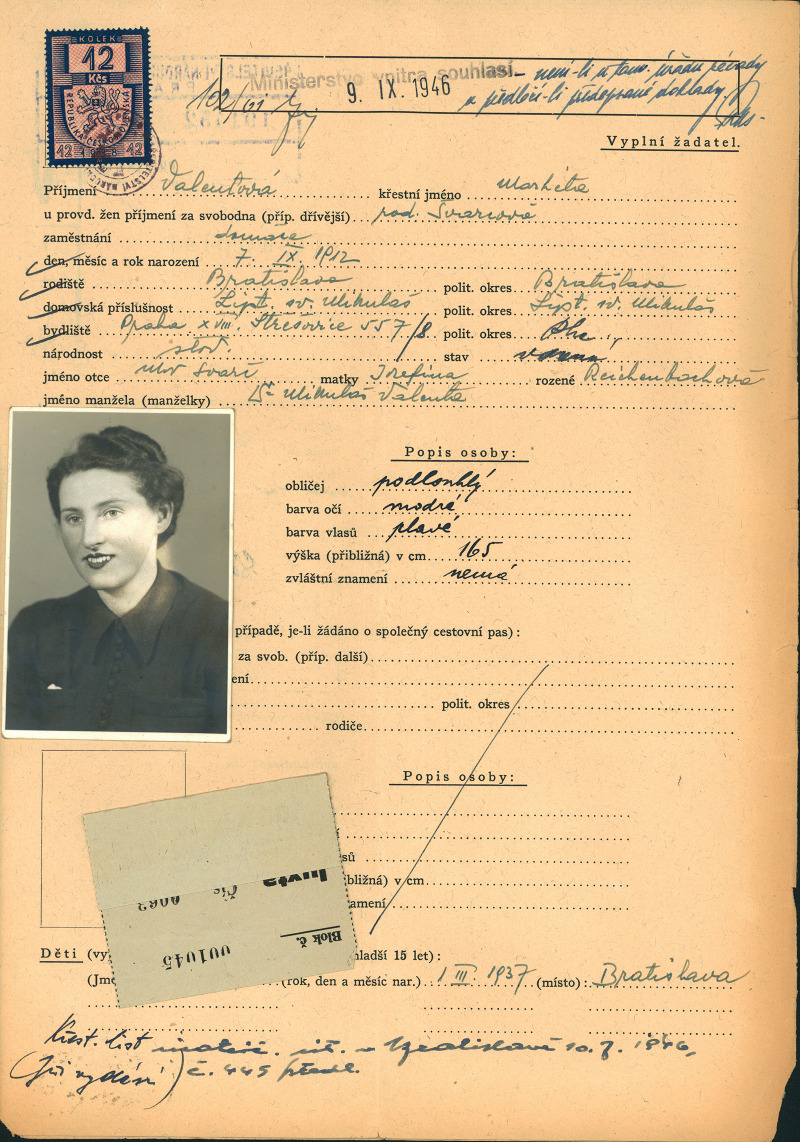 KOLEK
12
Kčs
REPUBLIKA ČESKOSLOVENSKÁ
12 12
Ministerstvo vnitra souhlasí
9. IX. 1946
není-li u tam. úřadu závady
a předloží-li předepsané doklady
102/61
Vyplní žadatel.
Příjmení Valentová křestní jméno Markéta
u provd. žen příjmení za svobodna (příp. dřívější) roz. Švarcová
zaměstnání domácí
den, měsíc a rok narození 7. IX. 1912
rodiště Bratislava polit. okres Bratislava
domovská příslušnost Lipt. sv. Mikuláš polit. okres Lipt. sv. Mikuláš
bydliště Praha XVIII. Střešovice 557/8 polit. okres
národnost slov. stav vdaná
jméno otce matky Jozefina rozené Reichenbachová
jméno manžela (manželky) Dr Mikuláš Valenta
Popis osoby:
obličej podlouhlý
barva očí modrá
barva vlasů plavé
výška (přibližná) v cm 165
zvláštní znamení nemá
případě, je-li žádáno o společný cestovní pas):
za svob. (příp. další)
ení
polit. okres
rodiče
Popis osoby:
sů
bližná) v cm
amení
Blok č.
001045
Děti (vy hladší 15 let):
(Jmé (rok, den a měsíc nar.) 1 III 1937 (místo): Bratislava
Křest. list v Bratislavě 10. 7. 1946,
č. 445 předl.